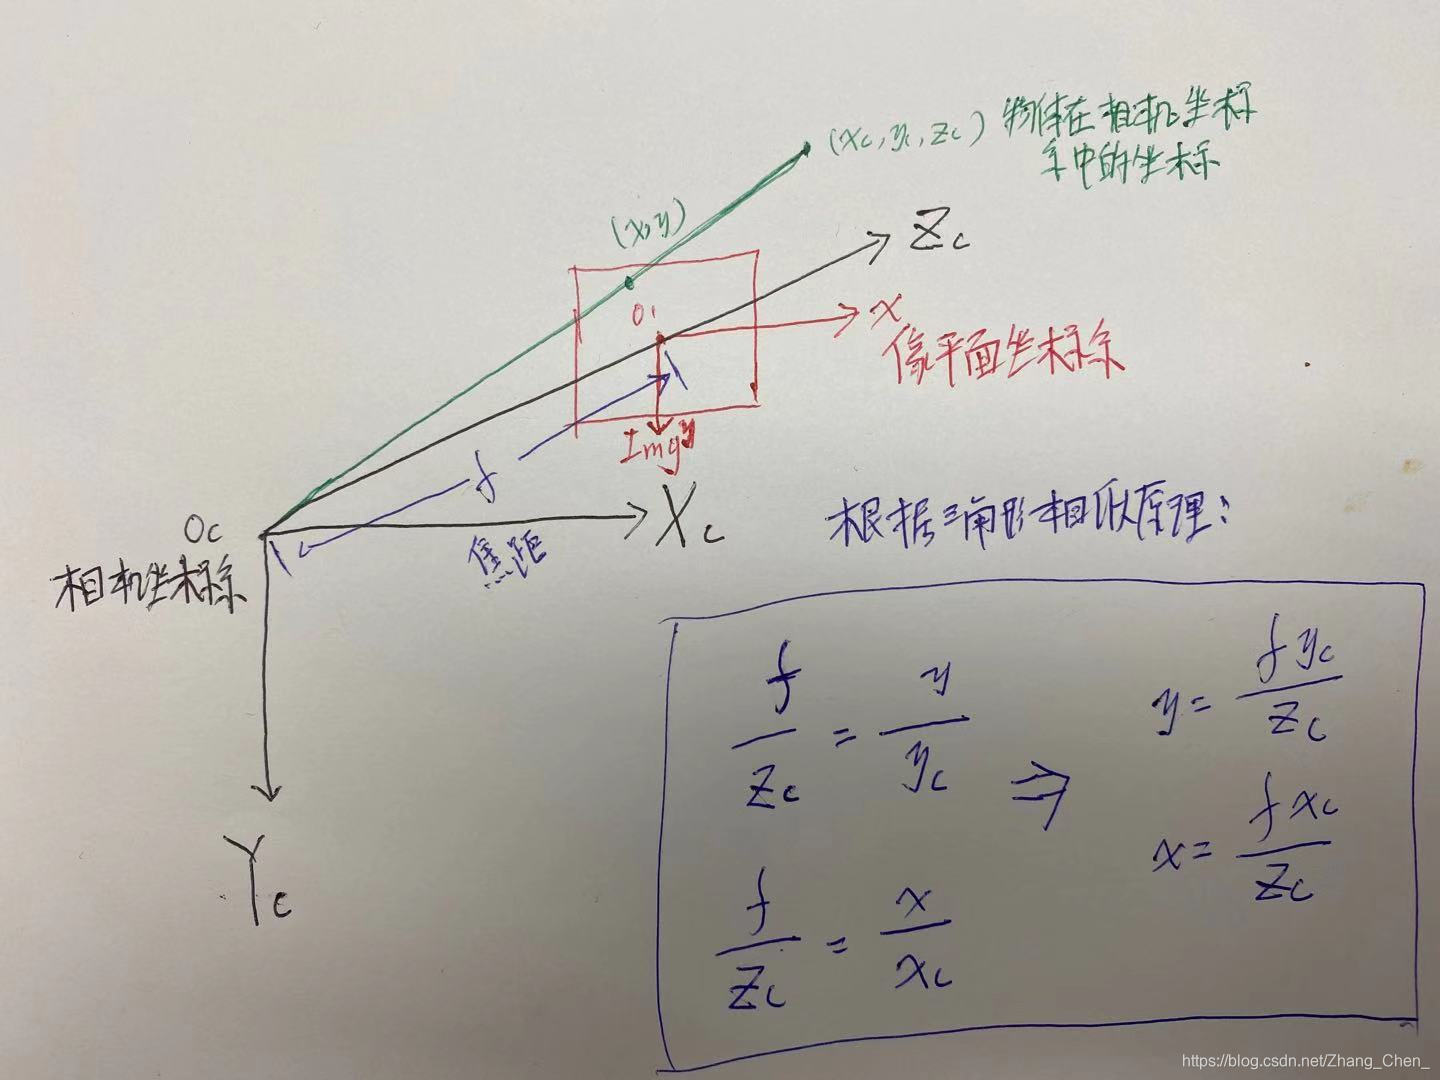 (xc, yc, zc) 物体在相机坐标
系中的坐标
(x,y)
Zc
O1
x
像平面坐标系
y
Img
f
Oc
Xc
相机坐标系
焦距
Yc
根据三角形相似原理:
f/zc = y/yc ⇒ y = f yc/zc
f/zc = x/xc
x = f xc/zc
https://blog.csdn.net/Zhang_Chen_